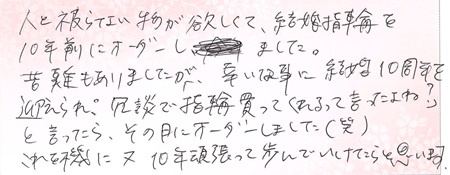 人と被らない物が欲しくて、結婚指輪を
10年前にオーダーしました。
苦難もありましたが、幸いな事に結婚10周年を
迎えられ。冗談で指輪買ってくれるって言ったよね?」
と言ったら、その日にオーダーしました(笑)
これを機に又10年頑張って歩んでいけたらと思います